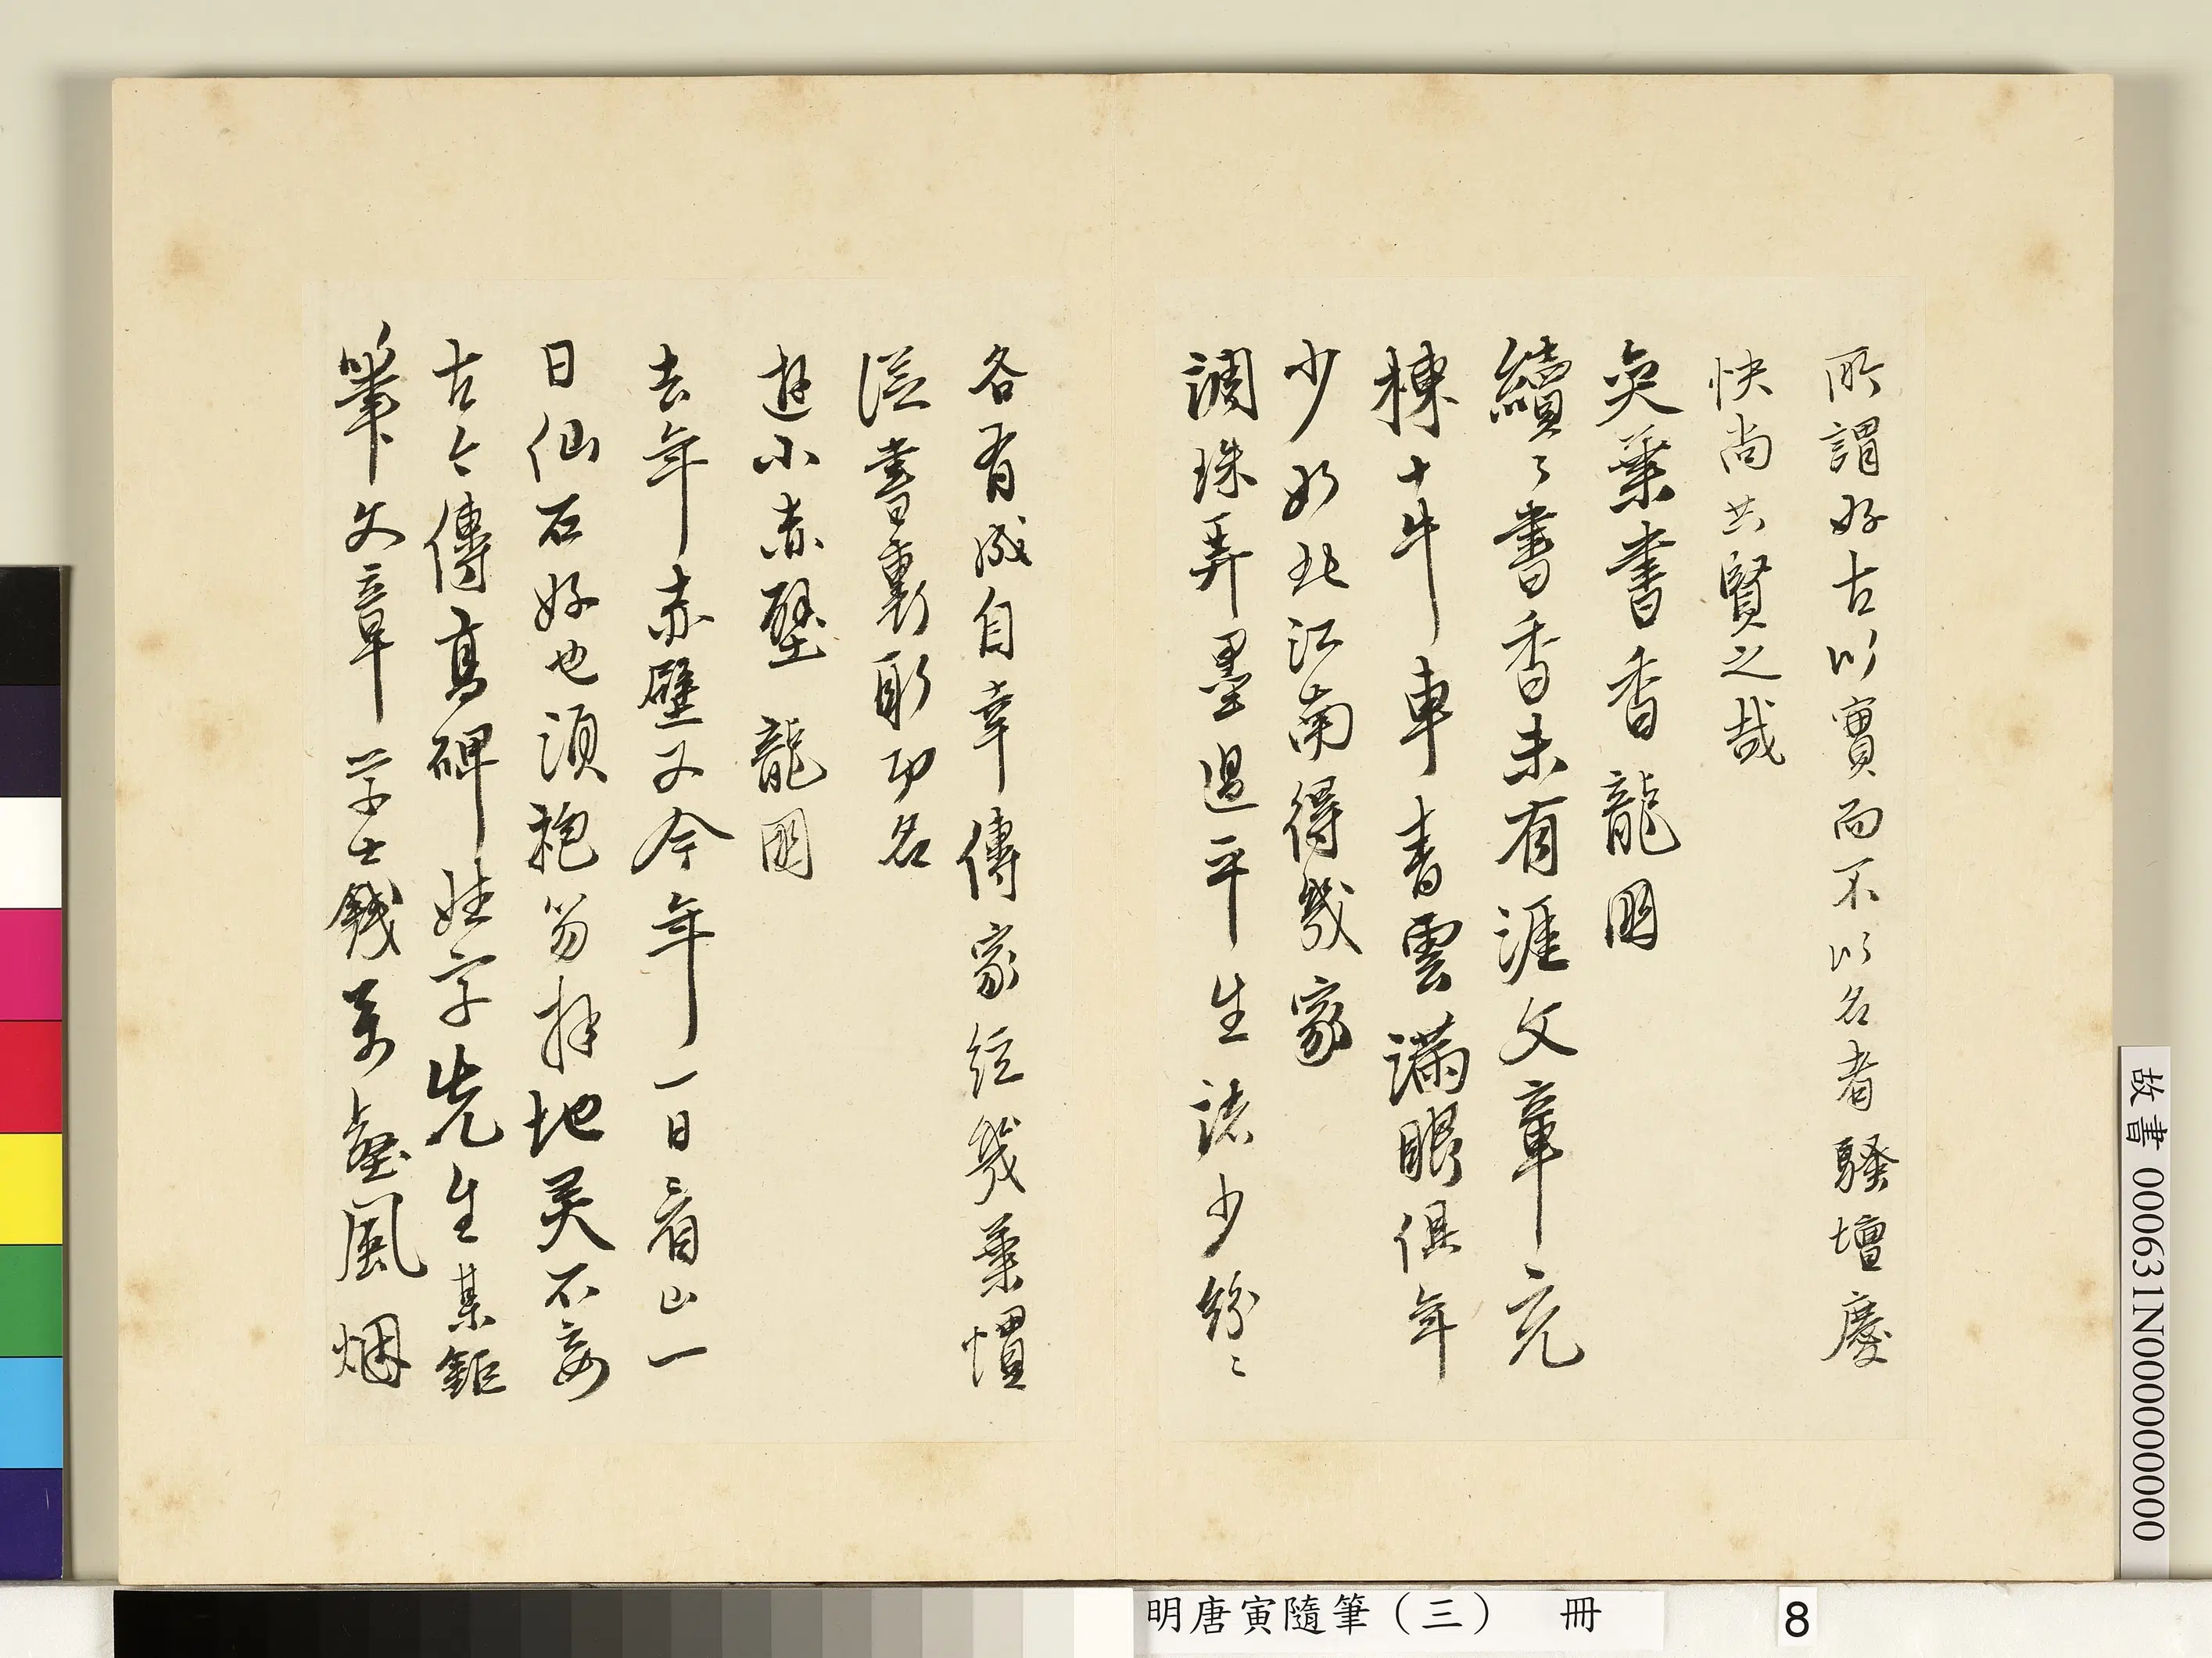 所謂好古以實而不以名者騷壇慶
快尚共賢之哉
奕葉書香 龍岡
續々書香未有涯文章充
棟十牛車青雲滿眼俱年
少如此江南得幾家
調珠弄墨過平生諸少紛〻
各有成自幸傳家經幾葉慣
從書裏取功名
遊小赤壁 龍岡
去年赤壁又今年一日看山一
日仙石好也須袍笏拜地靈不妄
古今傳高碑姓字先生某鉅
筆文章學士錢万壑風烟
故書 000631N000000000
明唐寅隨筆（三） 冊
8